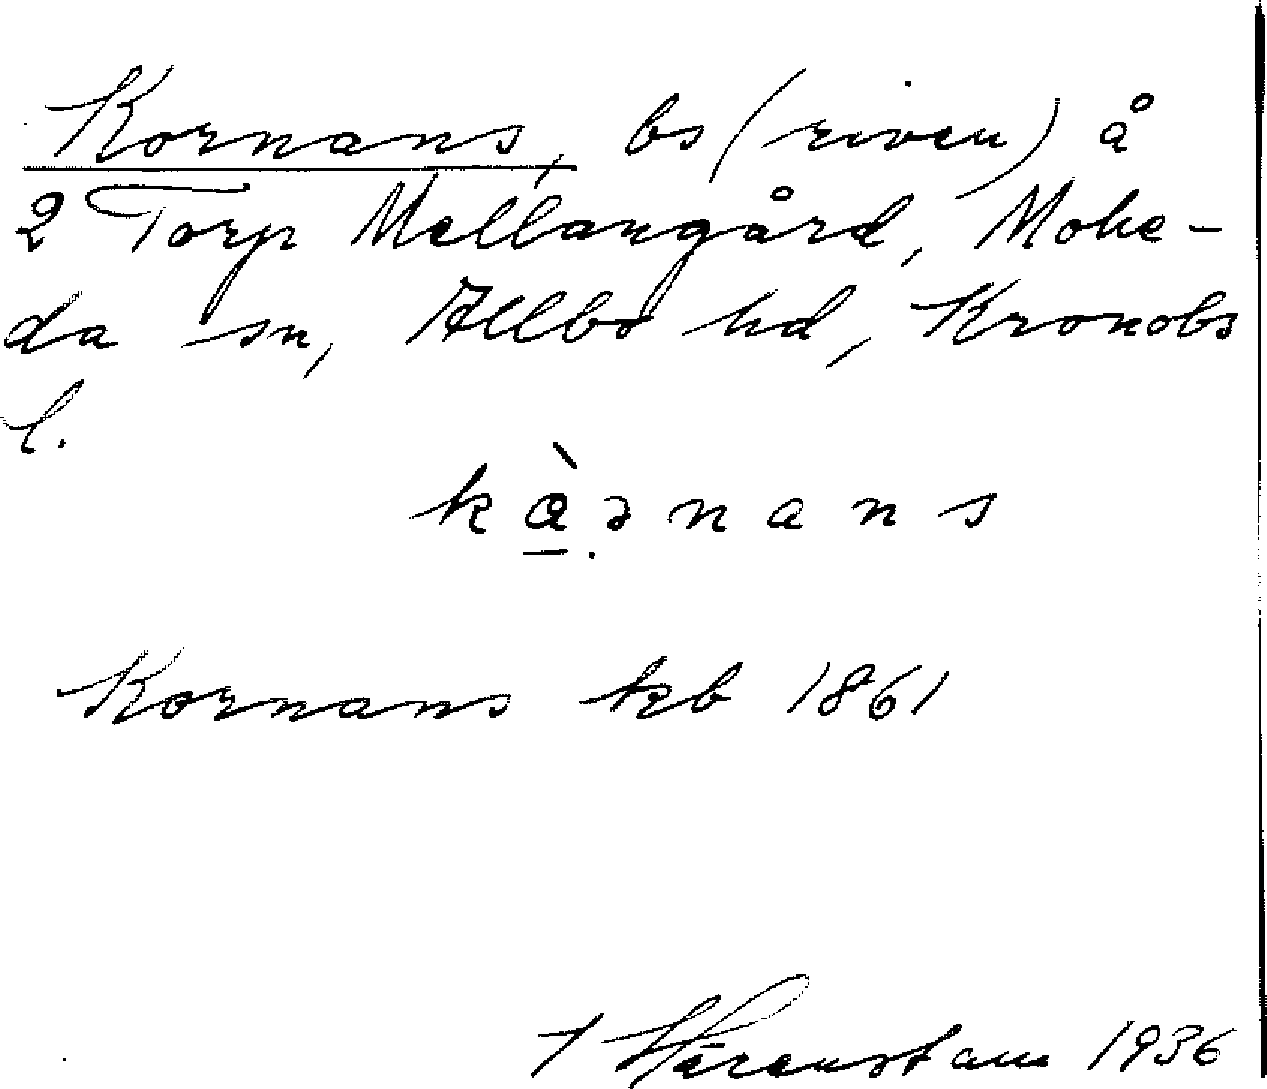 Kornans, bs (riven) å
2 Torp Mellangård, Mohe-
da sn, Allbo hd, Kronobs
l.
kàənans
Kornans kb 1861
1936